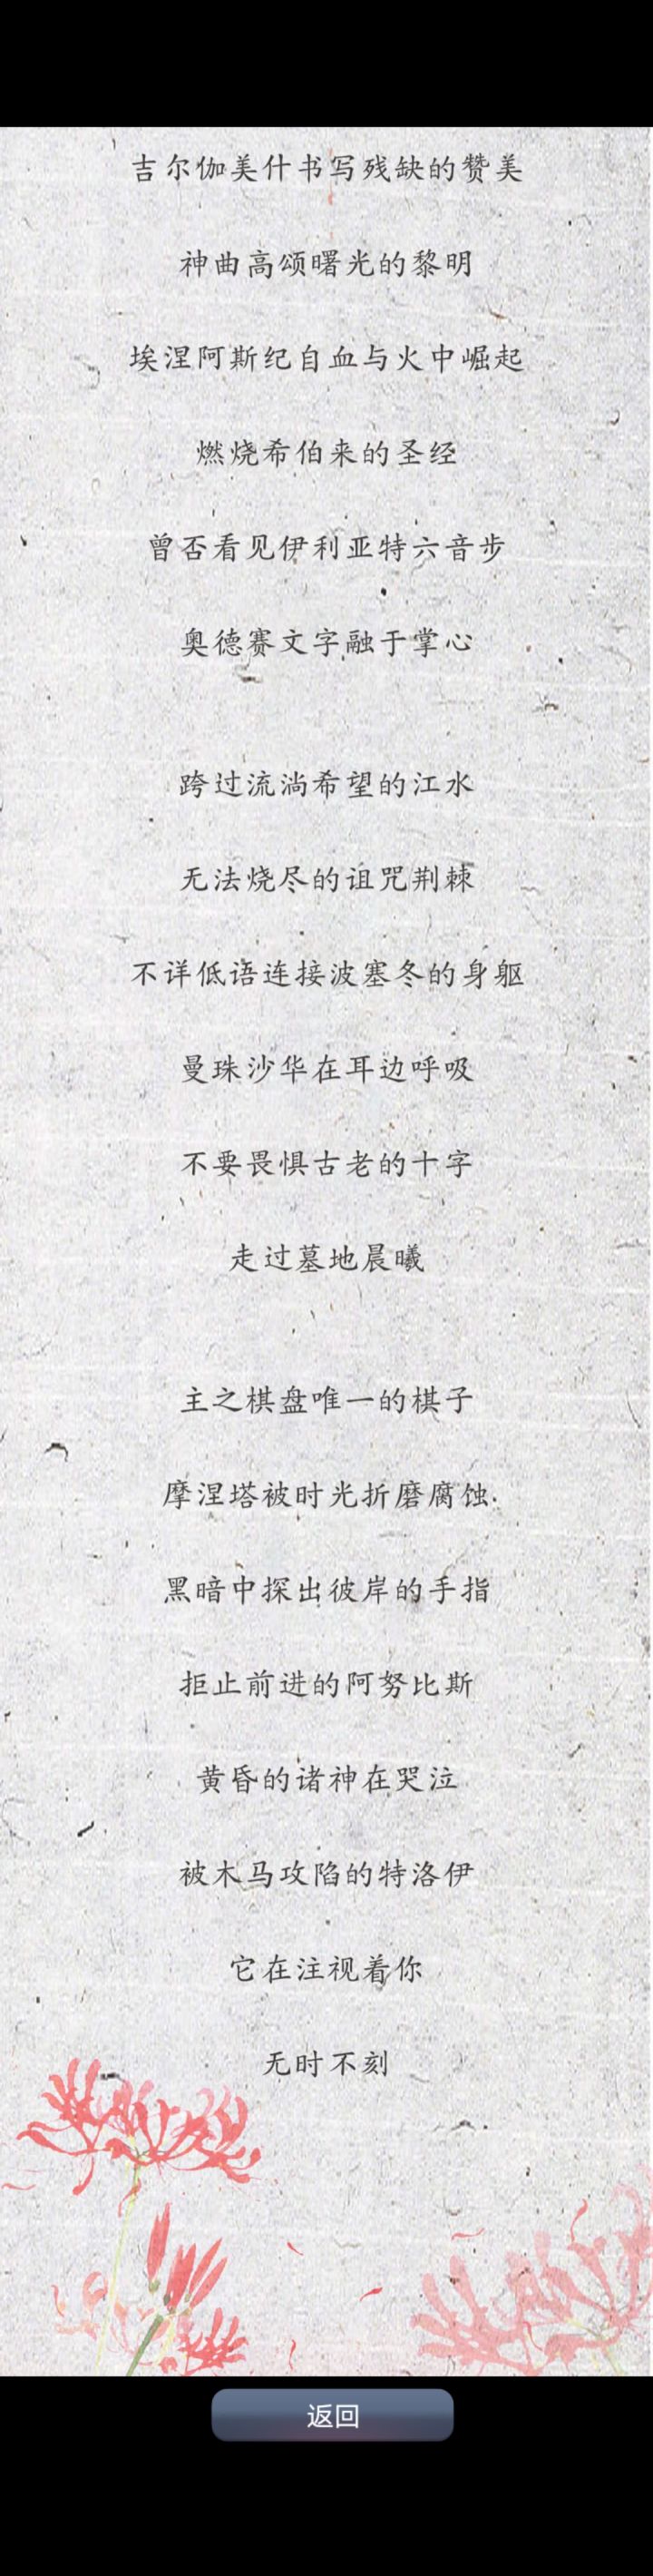 吉尔伽美什书写残缺的赞美
神曲高颂曙光的黎明
埃涅阿斯纪自血与火中崛起
燃烧希伯来的圣经
曾否看见伊利亚特六音步
奥德赛文字融于掌心
跨过流淌希望的江水
无法烧尽的诅咒荆棘
不详低语连接波塞冬的身躯
曼珠沙华在耳边呼吸
不要畏惧古老的十字
走过墓地晨曦
主之棋盘唯一的棋子
摩涅塔被时光折磨腐蚀.
黑暗中探出彼岸的手指
拒止前进的阿努比斯
黄昏的诸神在哭泣
被木马攻陷的特洛伊
它在注视着你
无时不刻
返回